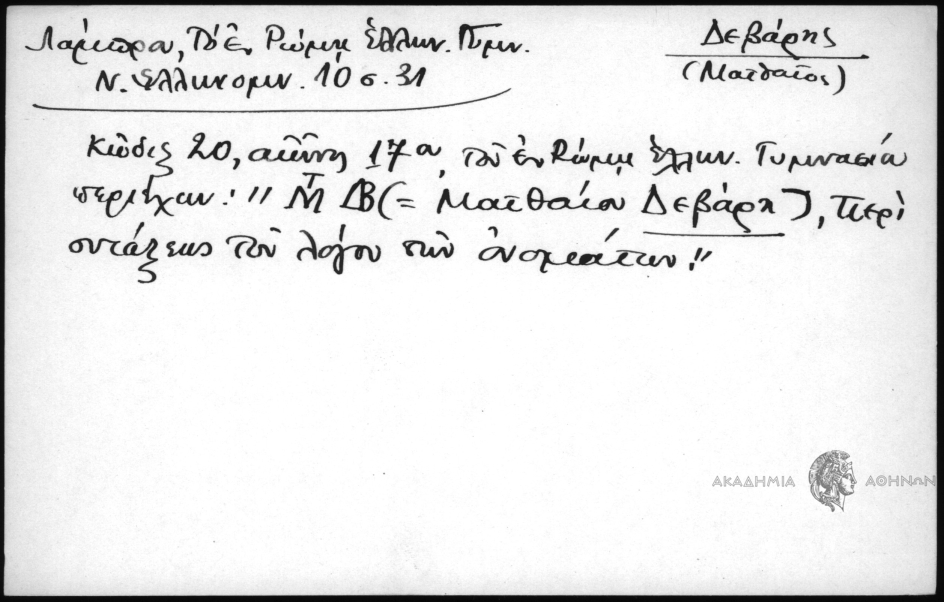 Λάμπρου, Τὸ ἐν Ῥώμῃ Ἑλλην. Γυμν.
Ν. Ἑλληνομν. 10 σ. 31
Δεβάρης
(Ματθαῖος)
Κῶδιξ 20, αἰῶνος 17ου, τοῦ ἐν Ῥώμῃ ἑλλην. Γυμνασίου
περιέχων: "Μ̄ ΔΒ (= Ματθαίου Δεβάρη), Περὶ
συντάξεως τοῦ λόγου τῶν ὀνομάτων."
ΑΚΑΔΗΜΙΑ ΑΘΗΝΩΝ